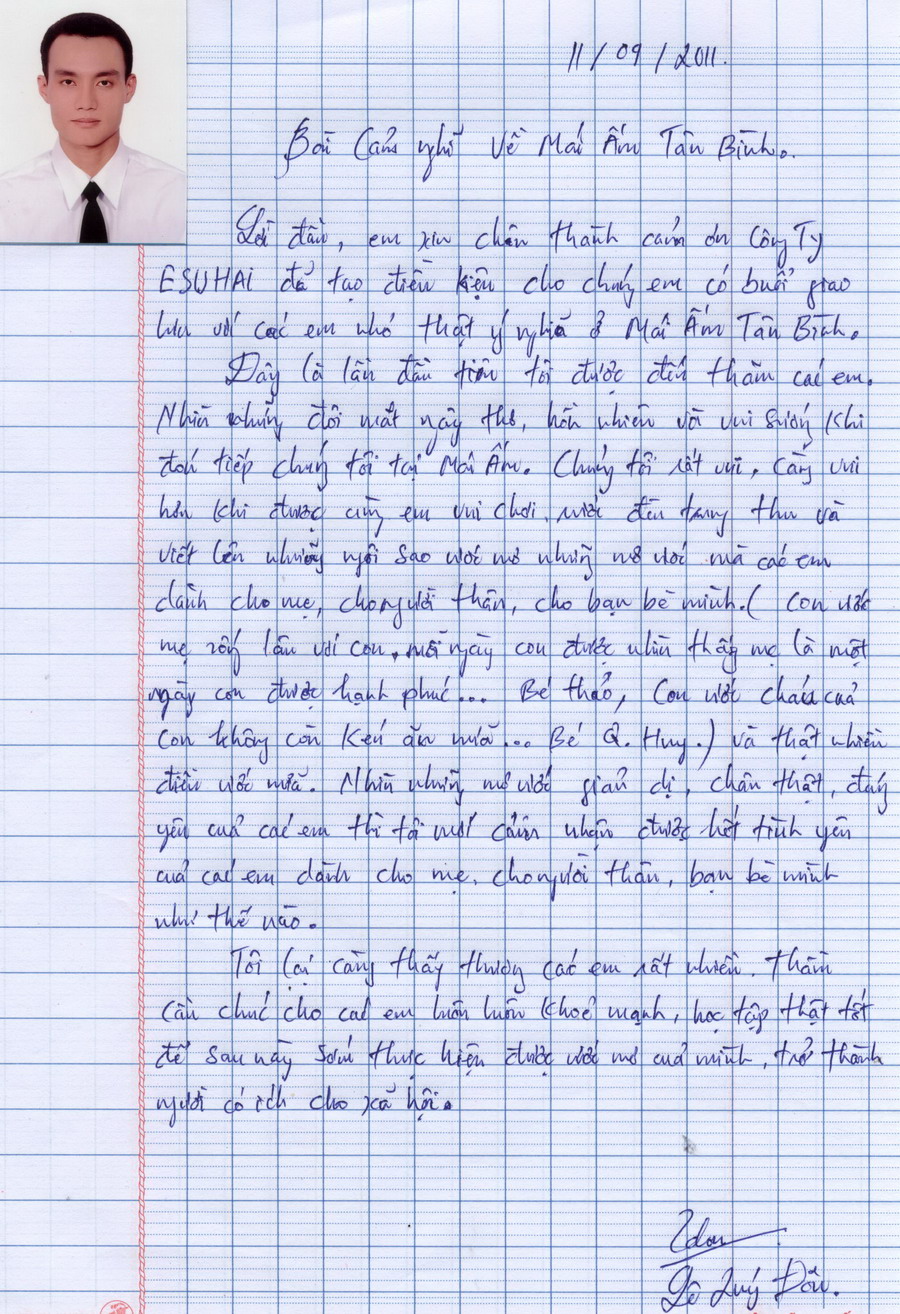 11/09/2011.
Bài Cảm nghĩ Về Mái Ấm Tân Bình.
Lời đầu, em xin chân thành cảm ơn Công Ty
ESUHAI đã tạo điều kiện cho chúng em có buổi giao
lưu với các em nhỏ thật ý nghĩa ở Mái Ấm Tân Bình.
Đây là lần đầu tiên tôi được đến thăm các em.
Nhìn những đôi mắt ngây thơ, hồn nhiên và vui sướng khi
đón tiếp chúng tôi tại Mái Ấm. Chúng tôi rất vui, càng vui
hơn khi được cùng em vui chơi, rước đèn trung thu và
viết lên những ngôi sao ước mơ những mơ ước mà các em
dành cho mẹ, cho người thân, cho bạn bè mình. ( Con ước
mẹ sống lâu với con, mỗi ngày con được nhìn thấy mẹ là một
ngày con được hạnh phúc... Bé thảo, Con ước cháu của
con không còn kén ăn nữa... Bé Q. Huy.) và thật nhiều
điều ước nữa. Nhìn những mơ ước giản dị, chân thật, đáng
yêu của các em thì tôi mới cảm nhận được hết tình yêu
của các em dành cho mẹ, cho người thân, bạn bè mình
như thế nào.
Tôi lại càng thấy thương các em rất nhiều. Thầm
cầu chúc cho các em luôn luôn khoẻ mạnh, học tập thật tốt
để sau này sớm thực hiện được ước mơ của mình, trở thành
người có ích cho xã hội.
Quý Đôn.